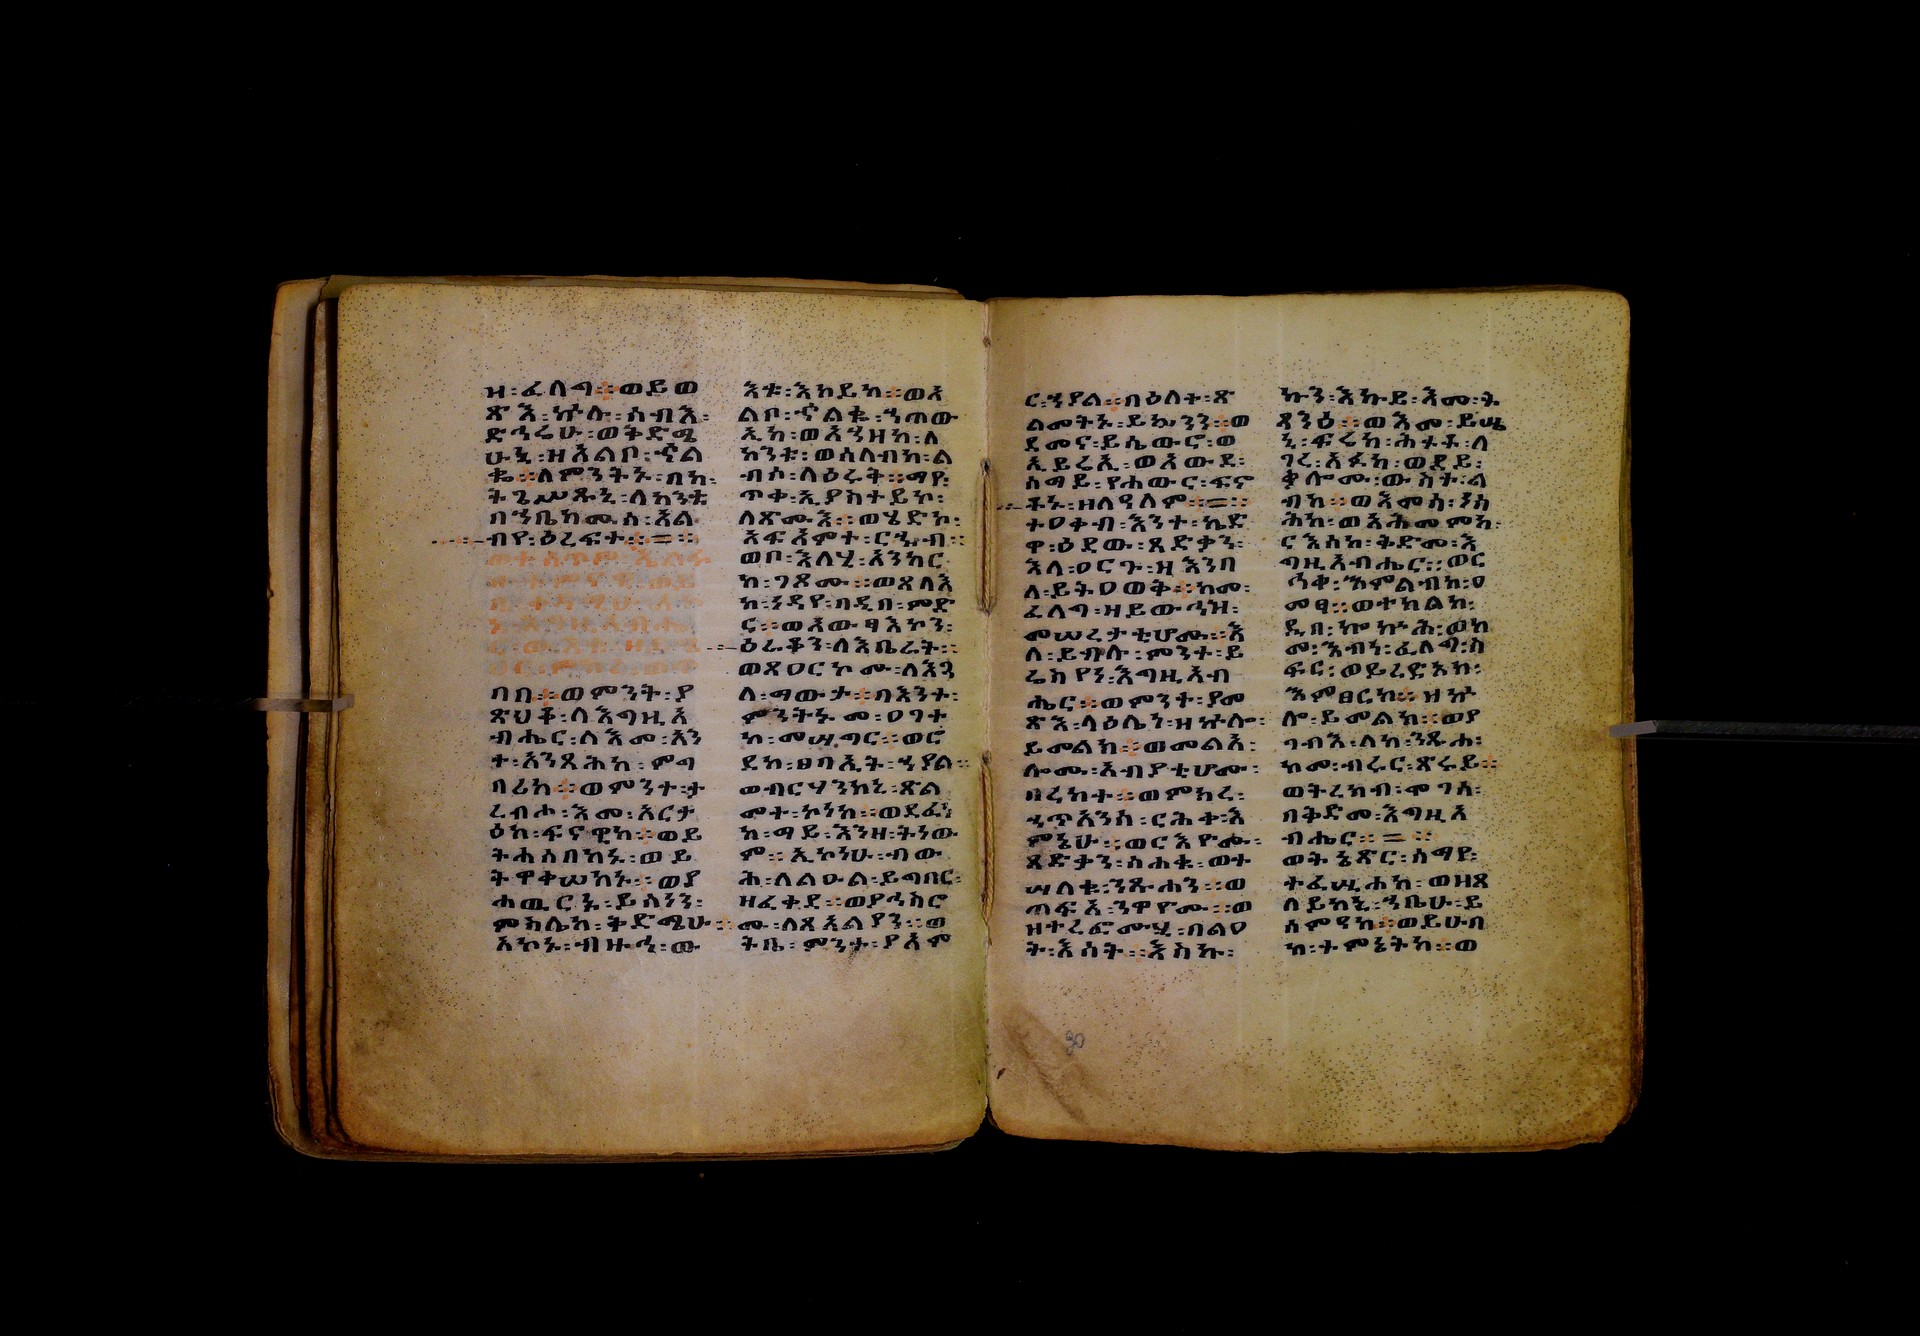 ዝ፡ፈለግ፡፡ወይወ
ጽእ፡ኵሉ፡ሰብእ፡
ድኅሬሁ፡ወቅድሜ
ሁኒ፡ዘአልቦ፡ኍል
ቈ፡፡ለምንትኑ፡በከ፡
ትጌሥጹኒ፡ለከንቱ
በኀቤክሙሰ፡አል
ብየ፡ዕረፍተ፡፡=፡፡
ባበ፡፡ወምንት፡ያ
ጽህቆ፡ለእግዚአ
ብሔር፡ለእመ፡አን
ተ፡አንጻሕከ፡ምግ
ባሪከ፡፡ወምንተ፡ታ
ረብሖ፡እመ፡አርታ
ዕከ፡ፍናዊከ፡፡ወይ
ትሐሰበከኑ፡ወይ
ትዋቀሠከኑ፡፡ወያ
ሐዊርኒ፡ይሰነን፡
ምክሌከ፡ቅድሜሁ፡፡
አኮኑ፡ብዙኅ፡ው
እቱ፡እከይከ፡፡ወአ
ልቦ፡ኍልቈ፡ኀጠው
ኢከ፡ወአኀዘከ፡ለ
ከንቱ፡ወሰለብከ፡ል
ብሶ፡ለዕሩቅ፡፡ማየ፡
ጥቀ፡ኢያስተይኮ፡
ለጽሙእ፡፡ወሄድኮ፡
አፍአምተ፡ርኁብ፡፡
ወቦ፡እለሂ፡አንከር
ከ፡ገጾሙ፡፡ወጸላእ
ከ፡ነዳየ፡በዲበ፡ምድ
ር፡፡ወአውፃእኮን፡
ዕራቆን፡ለእቤራት፡፡
ወጸዐርኮሙ፡ለእጓ
ለ፡ማውታ፡፡በእንተ፡
ምንትኑ፡መ፡ዐገተ
ከ፡መሣግር፡፡ወሮ
ደከ፡ፀባኢት፡ኀያል፡፡
ወብርሃንከኒ፡ጽል
መተ፡ኮነከ፡፡ወደፈነ
ከ፡ማይ፡እንዘ፡ትነው
ም፡፡ኢኮነሁ፡ብው
ሕ፡ለልዑል፡ይግበር፡
ዘፈቀደ፡፡ወያኅስሮ
ሙ፡ለጸአልያን፡፡ወ
ትቤ፡ምንተ፡ያአም
ር፡ኀያል፡፡በዕለተ፡ጽ
ልመትኑ፡ይኴንን፡፡ወ
ደመና፡ይሴውሮ፡ወ
ኢይሬኢ፡ወአውደ፡
ሰማይ፡የሐውር፡ፍና
ቶኑ፡ዘለዓለም፡፡=፡፡
ተዐቀብ፡እንተ፡ኬድ
ዋ፡ዕደው፡ጻድቃን፡
እለ፡ዐርጉ፡ዘእንበ
ለ፡ይትዐወቅ፡፡ከመ፡
ፈለግ፡ዘይውኅዝ፡
መሠረታቲሆሙ፡፡እ
ለ፡ይብሉ፡ምንተ፡ይ
ሬስየነ፡እግዚአብ
ሔር፡፡ወምንተ፡ያመ
ጽእ፡ላዕሌነ፡ዘኵሎ፡
ይመልክ፡፡ወመልአ፡
ሎሙ፡አብያቲሆሙ፡
በረከተ፡፡ወምክረ፡
ኀጥአንሰ፡ርሕቀ፡እ
ምኔሁ፡፡ወርእዮሙ፡
ጻድቃን፡ሰሐቁ፡ወተ
ሣለቁ፡ንጹሐን፡፡ወ
ጠፍአ፡ንዋዮሙ፡፡ወ
ዘተረፎሙሂ፡በልዐ
ት፡እሳት፡፡እስኩ፡
ኩን፡እኩይ፡እመ፡ት
ጸንዕ፡፡ወእመ፡ይሤ
ኒ፡ፍሬከ፡ሕተቶ፡ለ
ነገረ፡አፉከ፡ወደይ፡
ቃሎሙ፡ውስተ፡ል
ብከ፡፡ወእመሰ፡ነስ
ሕከ፡ወአሕመምከ፡
ርእሰከ፡ቅድመ፡እ
ግዚአብሔር፡፡ወር
ኅቀ፡እምልብከ፡ዐ
መፃ፡፡ወተከልከ፡
ዲበ፡ኰኵሕ፡ወከ
መ፡እብነ፡ፈለግ፡ሶ
ፍር፡ወይረድአከ፡
እምፀርከ፡፡ዘኵ
ሎ፡ይመልክ፡፡ወያ
ገብእ፡ለከ፡ንጹሐ፡
ከመ፡ብሩር፡ጽሩይ፡፡
ወትረክብ፡ሞገሰ፡
በቅድመ፡እግዚአ
ብሔር፡፡=፡፡
ወትኔጽር፡ሰማየ፡
ተፈሢሐከ፡ወዘጸ
ለይከኒ፡ኀቤሁ፡ይ
ሰምዓከ፡፡ወይሁበ
ከ፡ተምኔትከ፡፡ወ